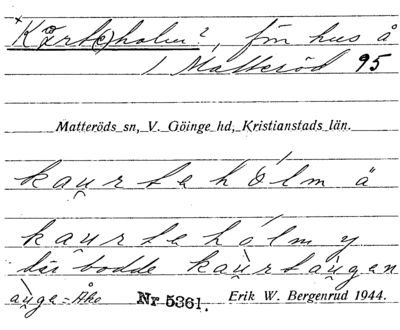 Kort(e)holm?, förr hus å
1 Matteröd 95
Matteröds sn, V. Göinge hd, Kristianstads län.
kau̯rtahólm ä
kau̯rtahólm y
där bodde kàu̯rtàu̯gan
àu̯ga = Åke Nr 5361. Erik W. Bergenrud 1944.